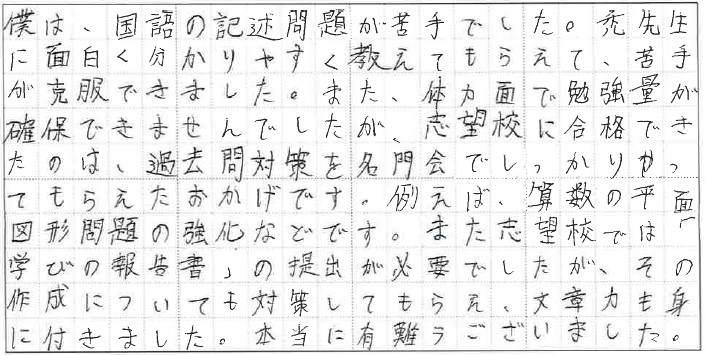 僕は、国語の記述問題が苦手でした。禿先生
に面白く分かりやすく教えてもらえて、苦手
が克服できました。また、体力面で勉強量が
確保できませんでしたが、志望校に合格でき
たのは、過去問対策を名門会でしっかりやっ
てもらえたおかげです。例えば、算数の平面
図形問題の強化などです。また志望校では「
学びの報告書」の提出が必要でしたが、その
作成についても対策してもらえ、文章力も身
に付きました。本当に有難うございました。